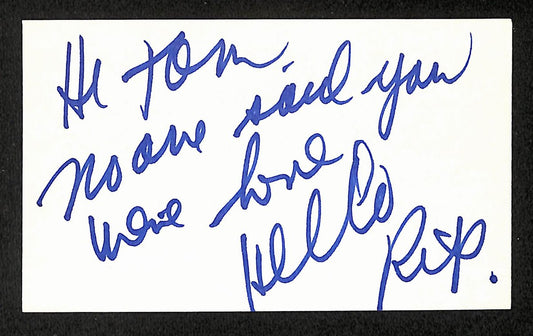 Hi Tom
no one said you
were here
Hello
Rip.